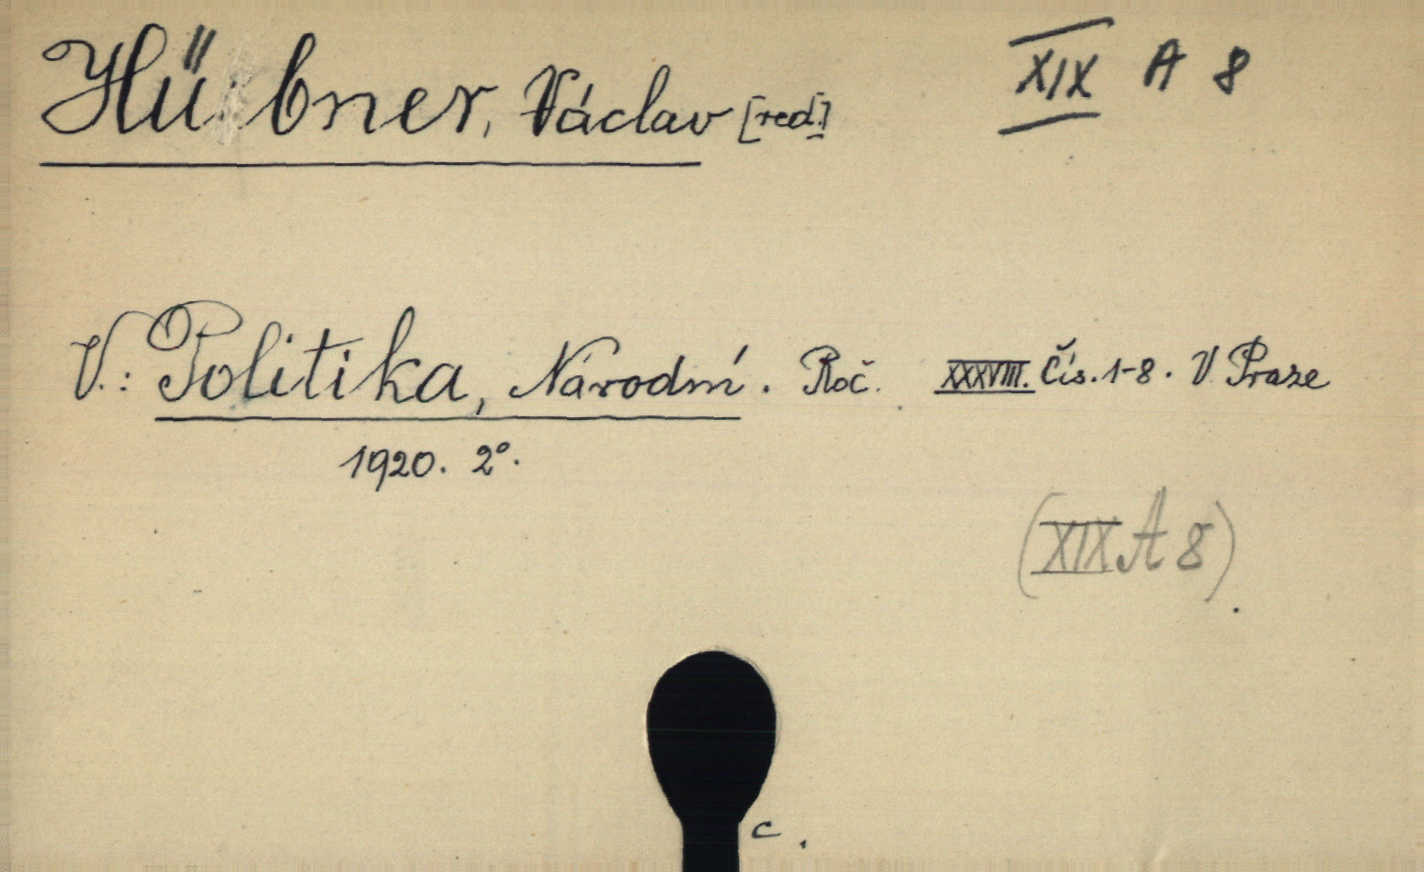 Hübner, Václav [red.] XIX A 8
V.: Politika, Národní. Roč. XXXVIII. Čís. 1-8. V Praze
1920. 2°.
(XIX A 8)
c.